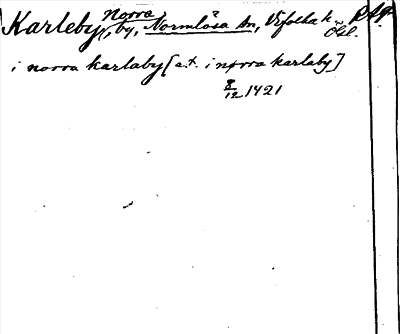 Karleby, Norra, by, Normlösa sn, Vifolka h. Ögl. RAp.
i norra karlaby [a.t. i nørra karlaby]
8/12 1421